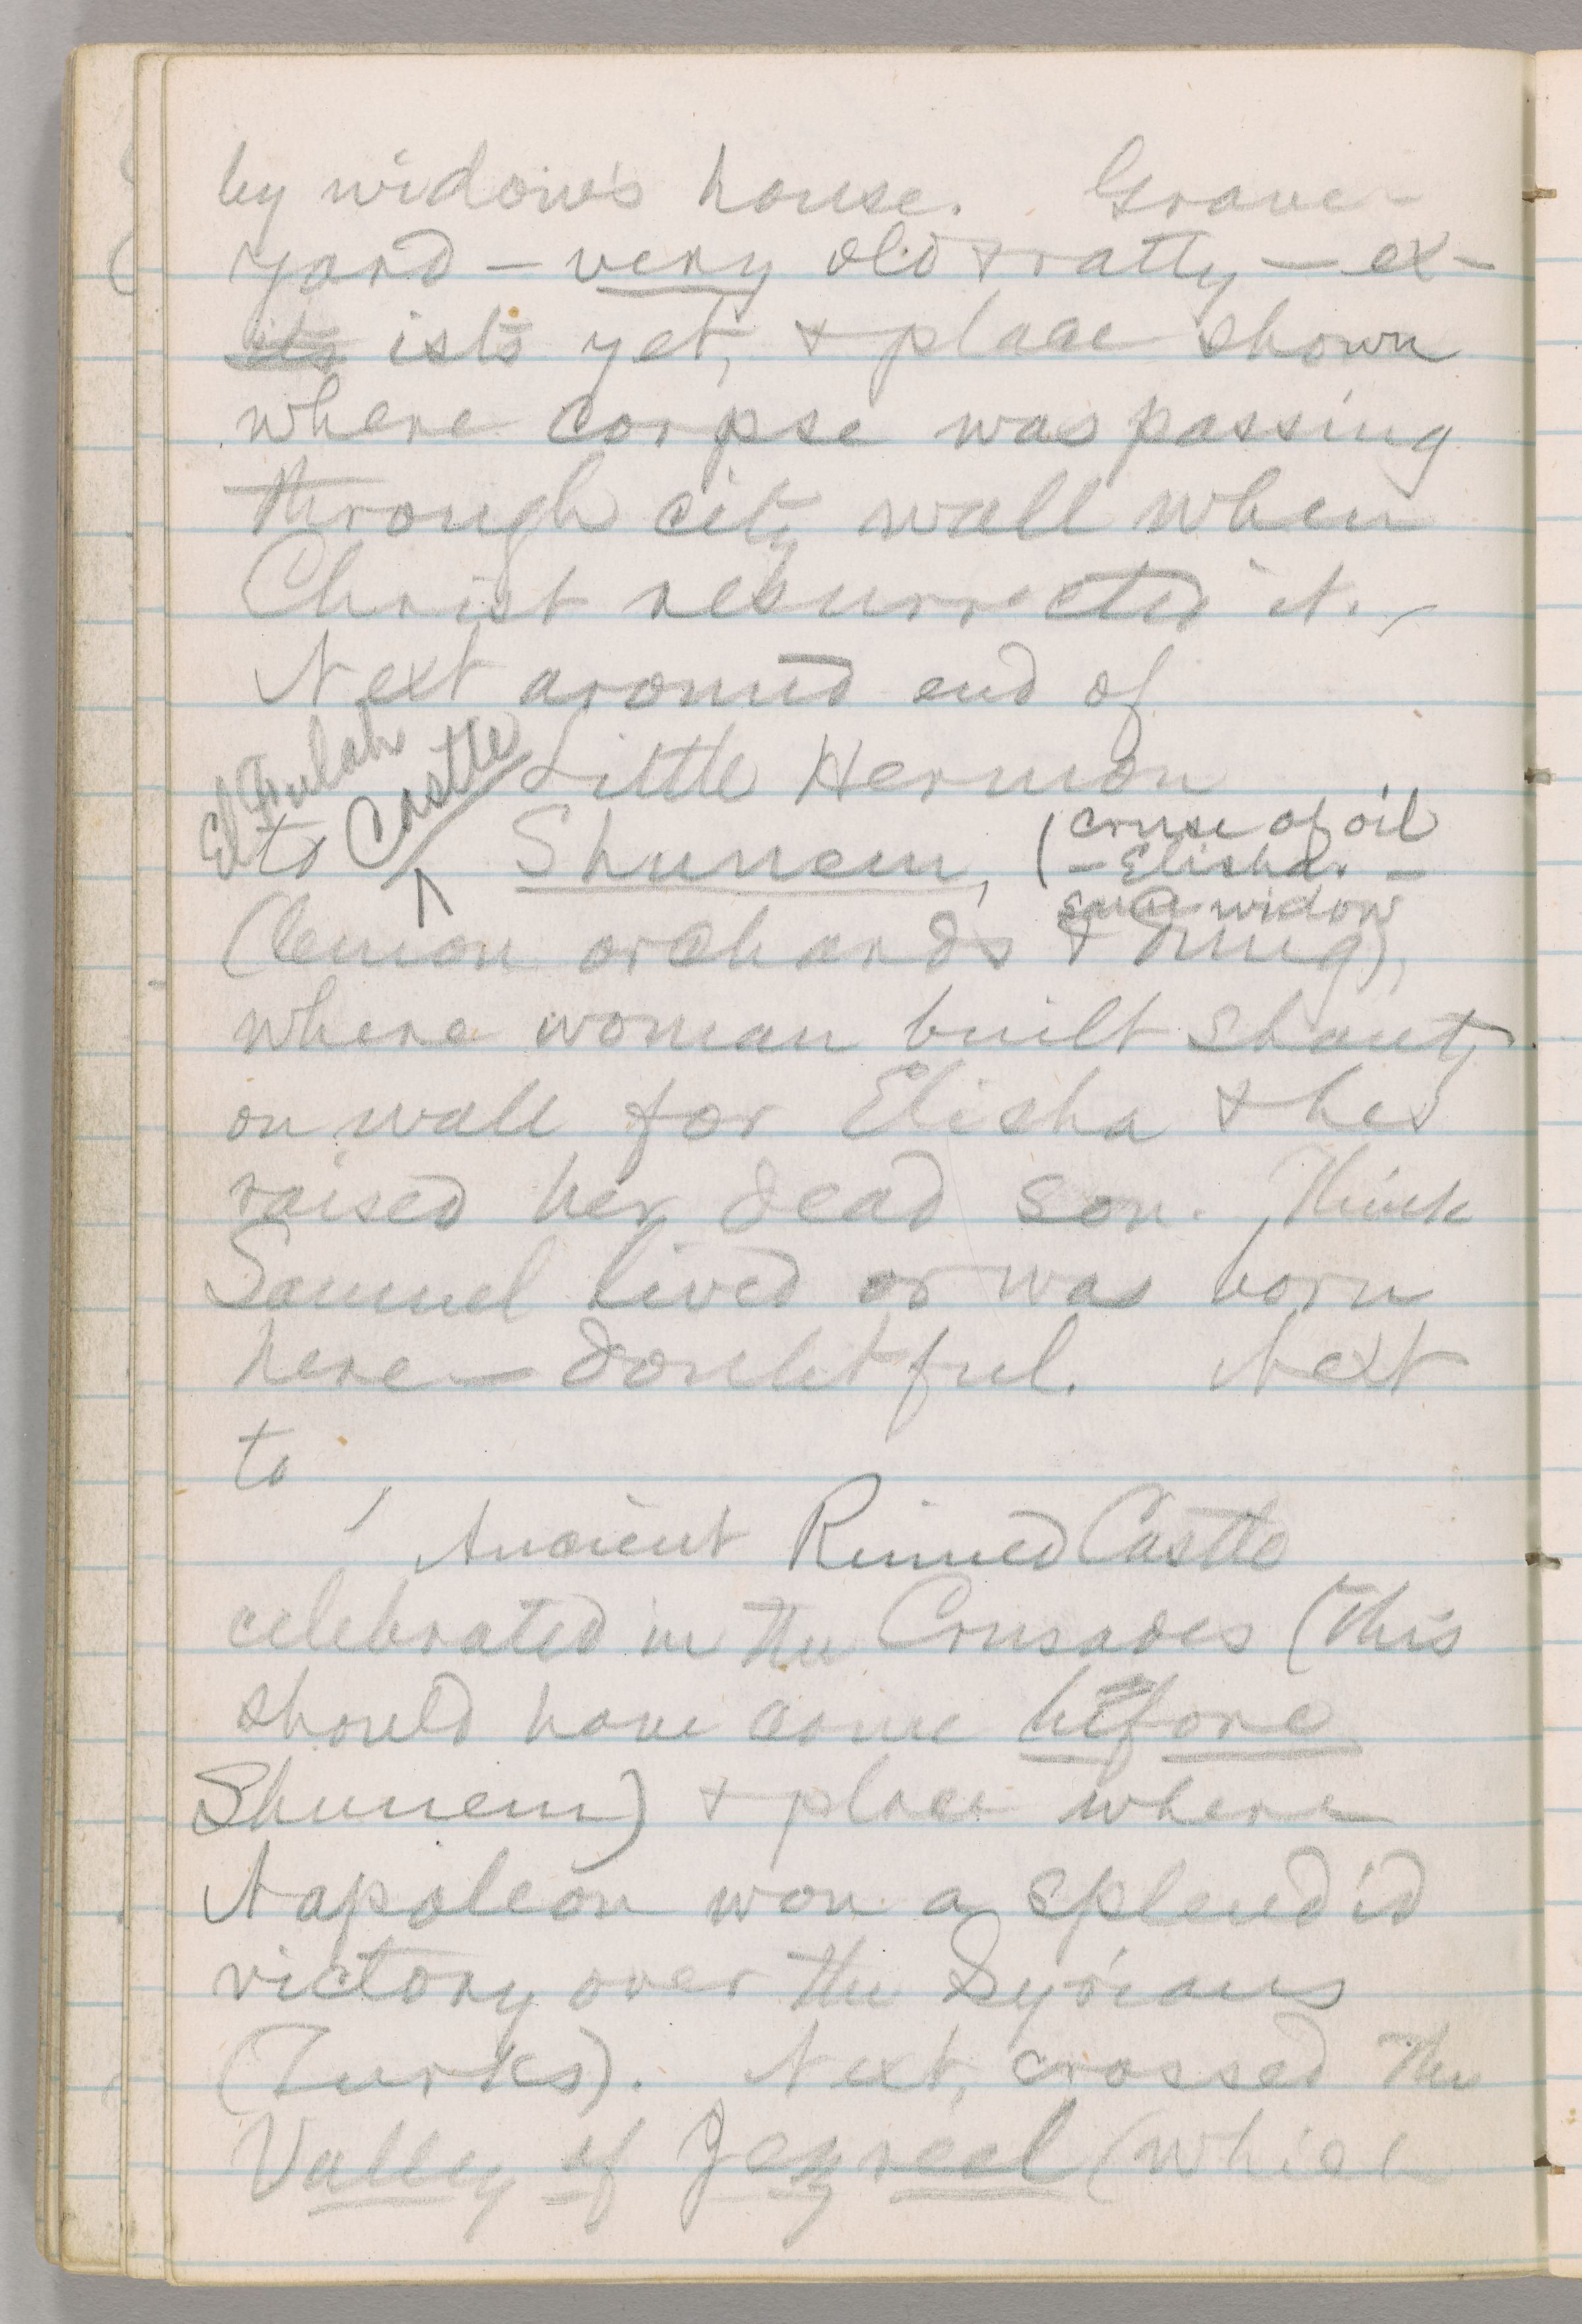 by widow's house. Grave-
yard — very old & ratty — ex-
its ists yet, & place shown
where corpse was passing
through city wall when
Christ resurrected it.
Next around end of
Little Hermon
El Fulah
Castle
to Shunem, (cruse of oil
— Elisha. —
same widow
(lemon orchards &
where woman built shanty
on wall for Elisha & he
raised her dead son. Think
Samuel lived or was born
here — doubtful. Next
to
Ancient Ruined Castle
celebrated in the Crusades (this
should have come before
Shunem) & place where
Napoleon won a splendid
victory over the Syrians
(Turks). Next, crossed the
Valley of Jezreel (which